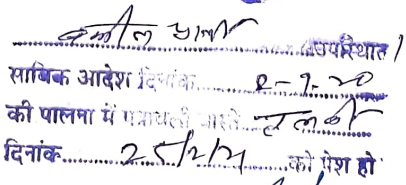 वकील प्रार्थी उपस्थित।
साबिक आदेश दिनांक 2-9-20
की पालना में पत्रावली वास्ते तलबी
दिनांक 25/2/21 को पेश हो